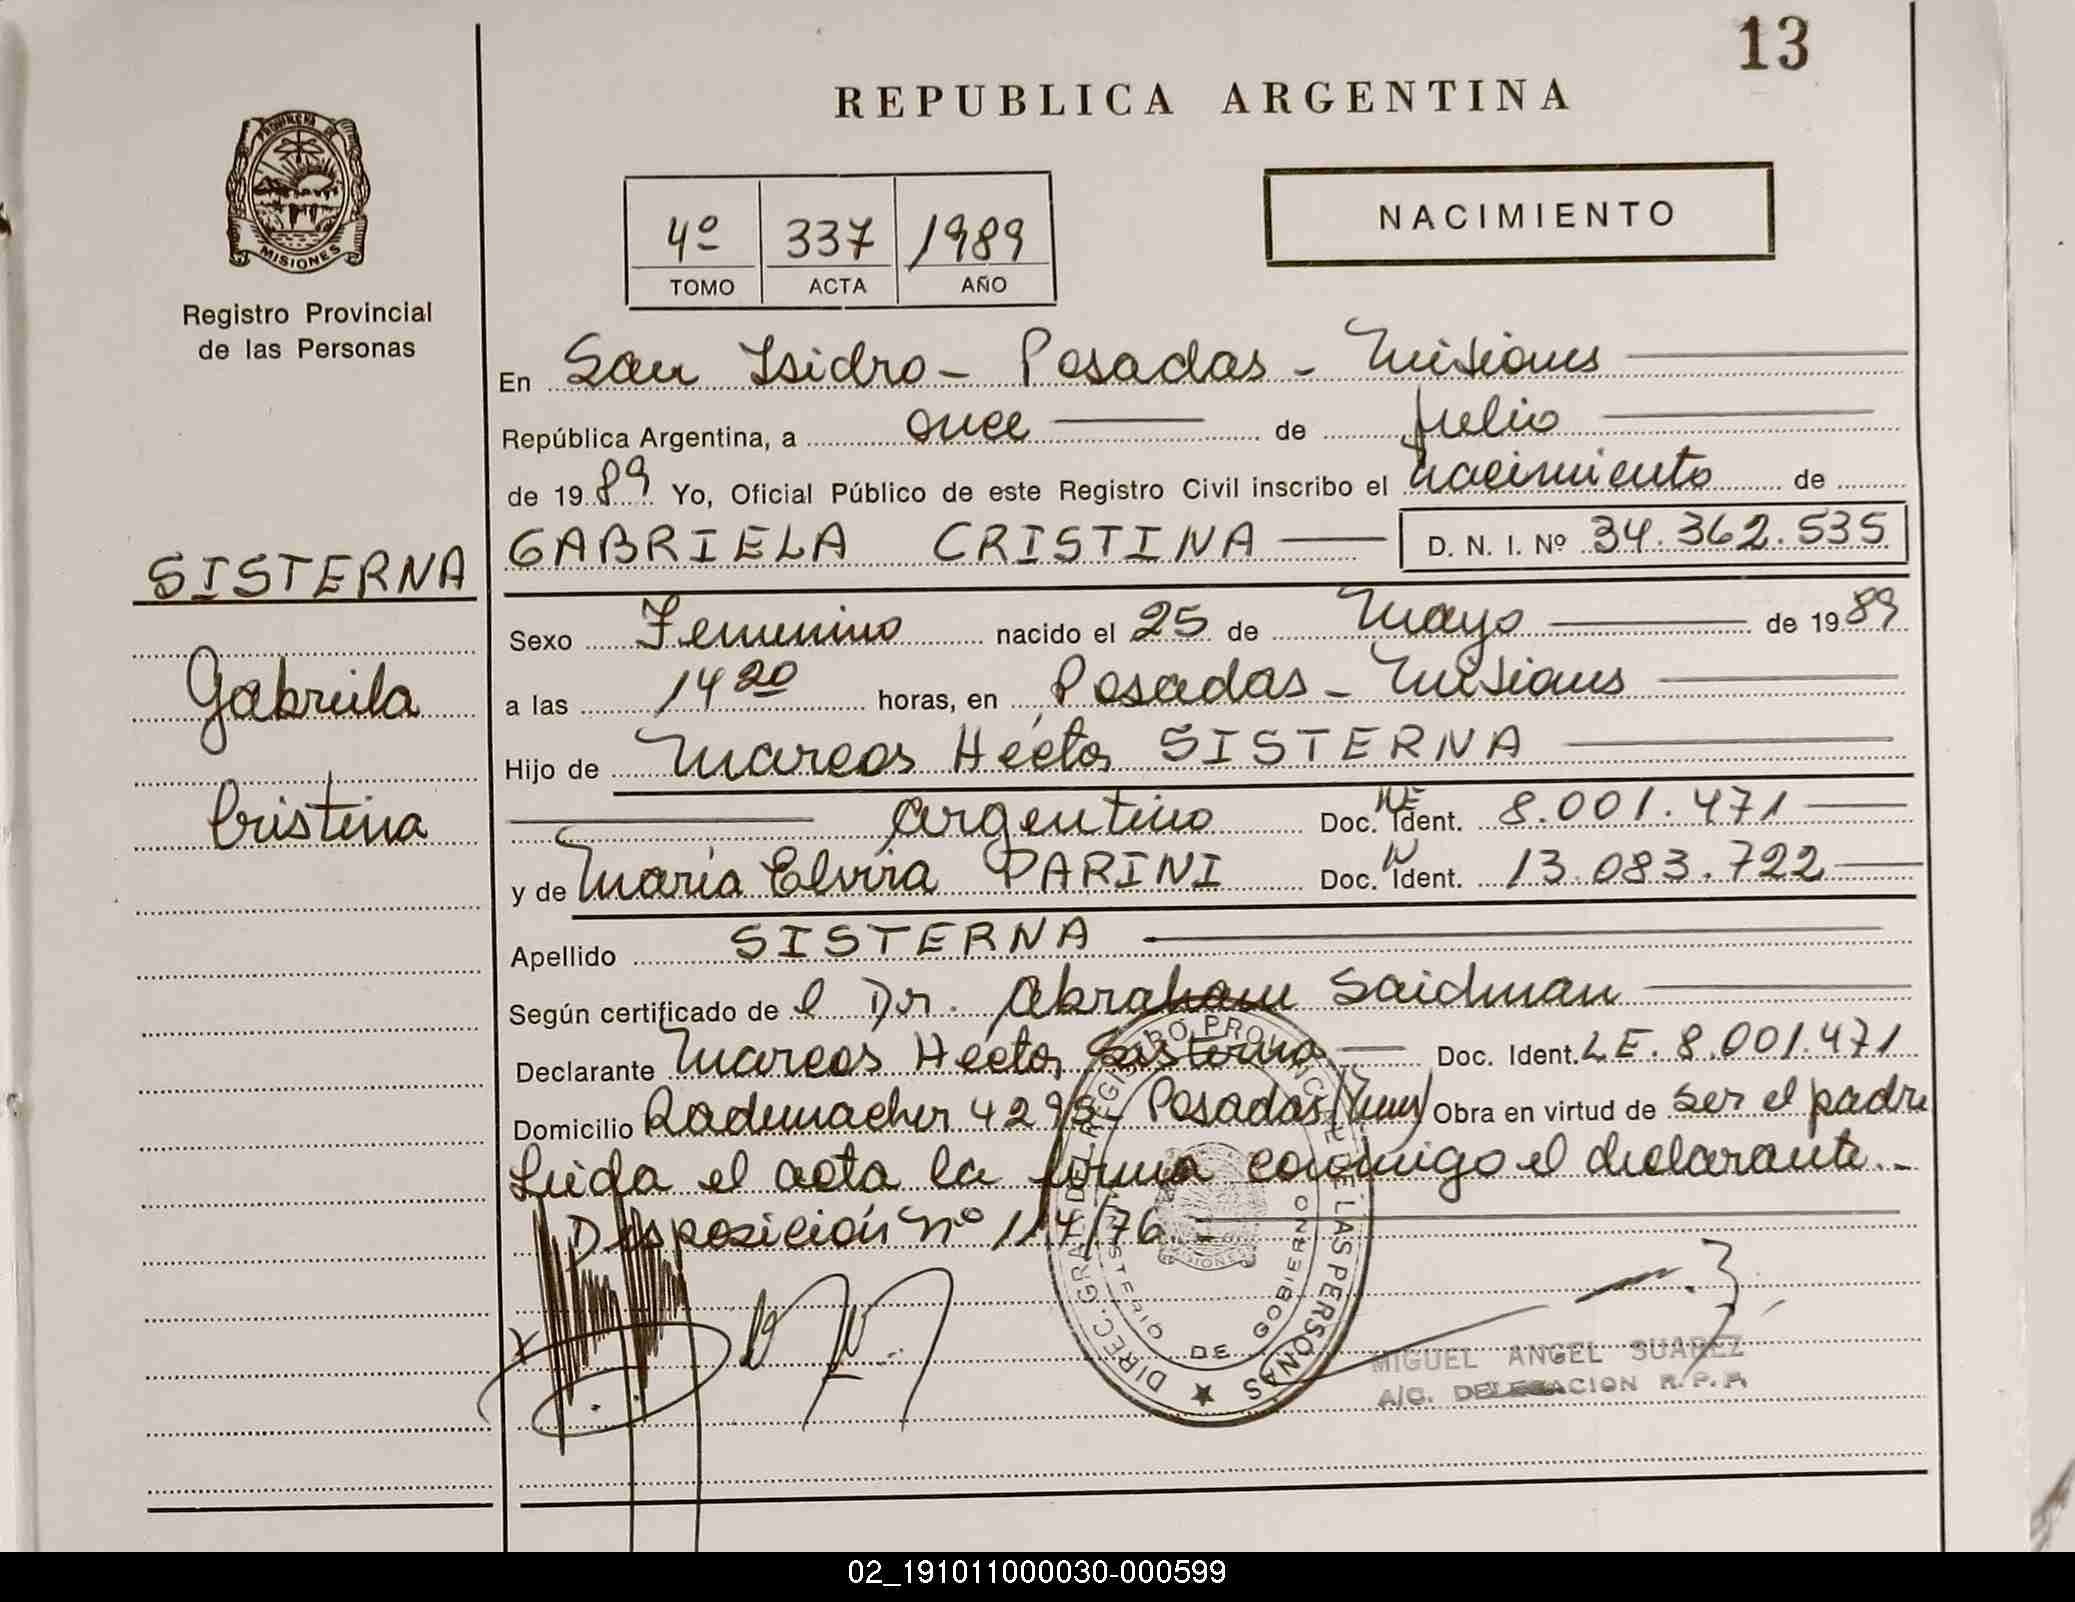 13
REPUBLICA ARGENTINA
PROVINCIA DE
MISIONES
Registro Provincial
de las Personas
4º 337 1989
TOMO ACTA AÑO
NACIMIENTO
En San Isidro - Posadas - Misiones
República Argentina, a once de Julio
de 1989 Yo, Oficial Público de este Registro Civil inscribo el nacimiento de
GABRIELA CRISTINA D. N. I. Nº 34.362.535
SISTERNA
Gabriela
Cristina
Sexo Femenino nacido el 25 de Mayo de 1989
a las 14 20 horas, en Posadas - Misiones
Hijo de Marcos Héctor SISTERNA
Argentino Doc. Ident. 8.001.471
y de María Elvira PARINI Doc. Ident. 13.083.722
Apellido SISTERNA
Según certificado de l Dr. Abraham Saidman
Declarante Marcos Héctor Sisterna Doc. Ident. L.E. 8.001.471
Domicilio Rademacher 4298 - Posadas (Mnes) Obra en virtud de ser el padre
Leida el acta la firma conmigo el declarante.-
Disposición Nº 114/76
DIREC. GRAL. DEL REGISTRO PROVINCIAL DE LAS PERSONAS
MINISTERIO DE GOBIERNO
MISIONES
MIGUEL ANGEL SUAREZ
A/C. DELEGACION R.P.P.
02_191011000030-000599